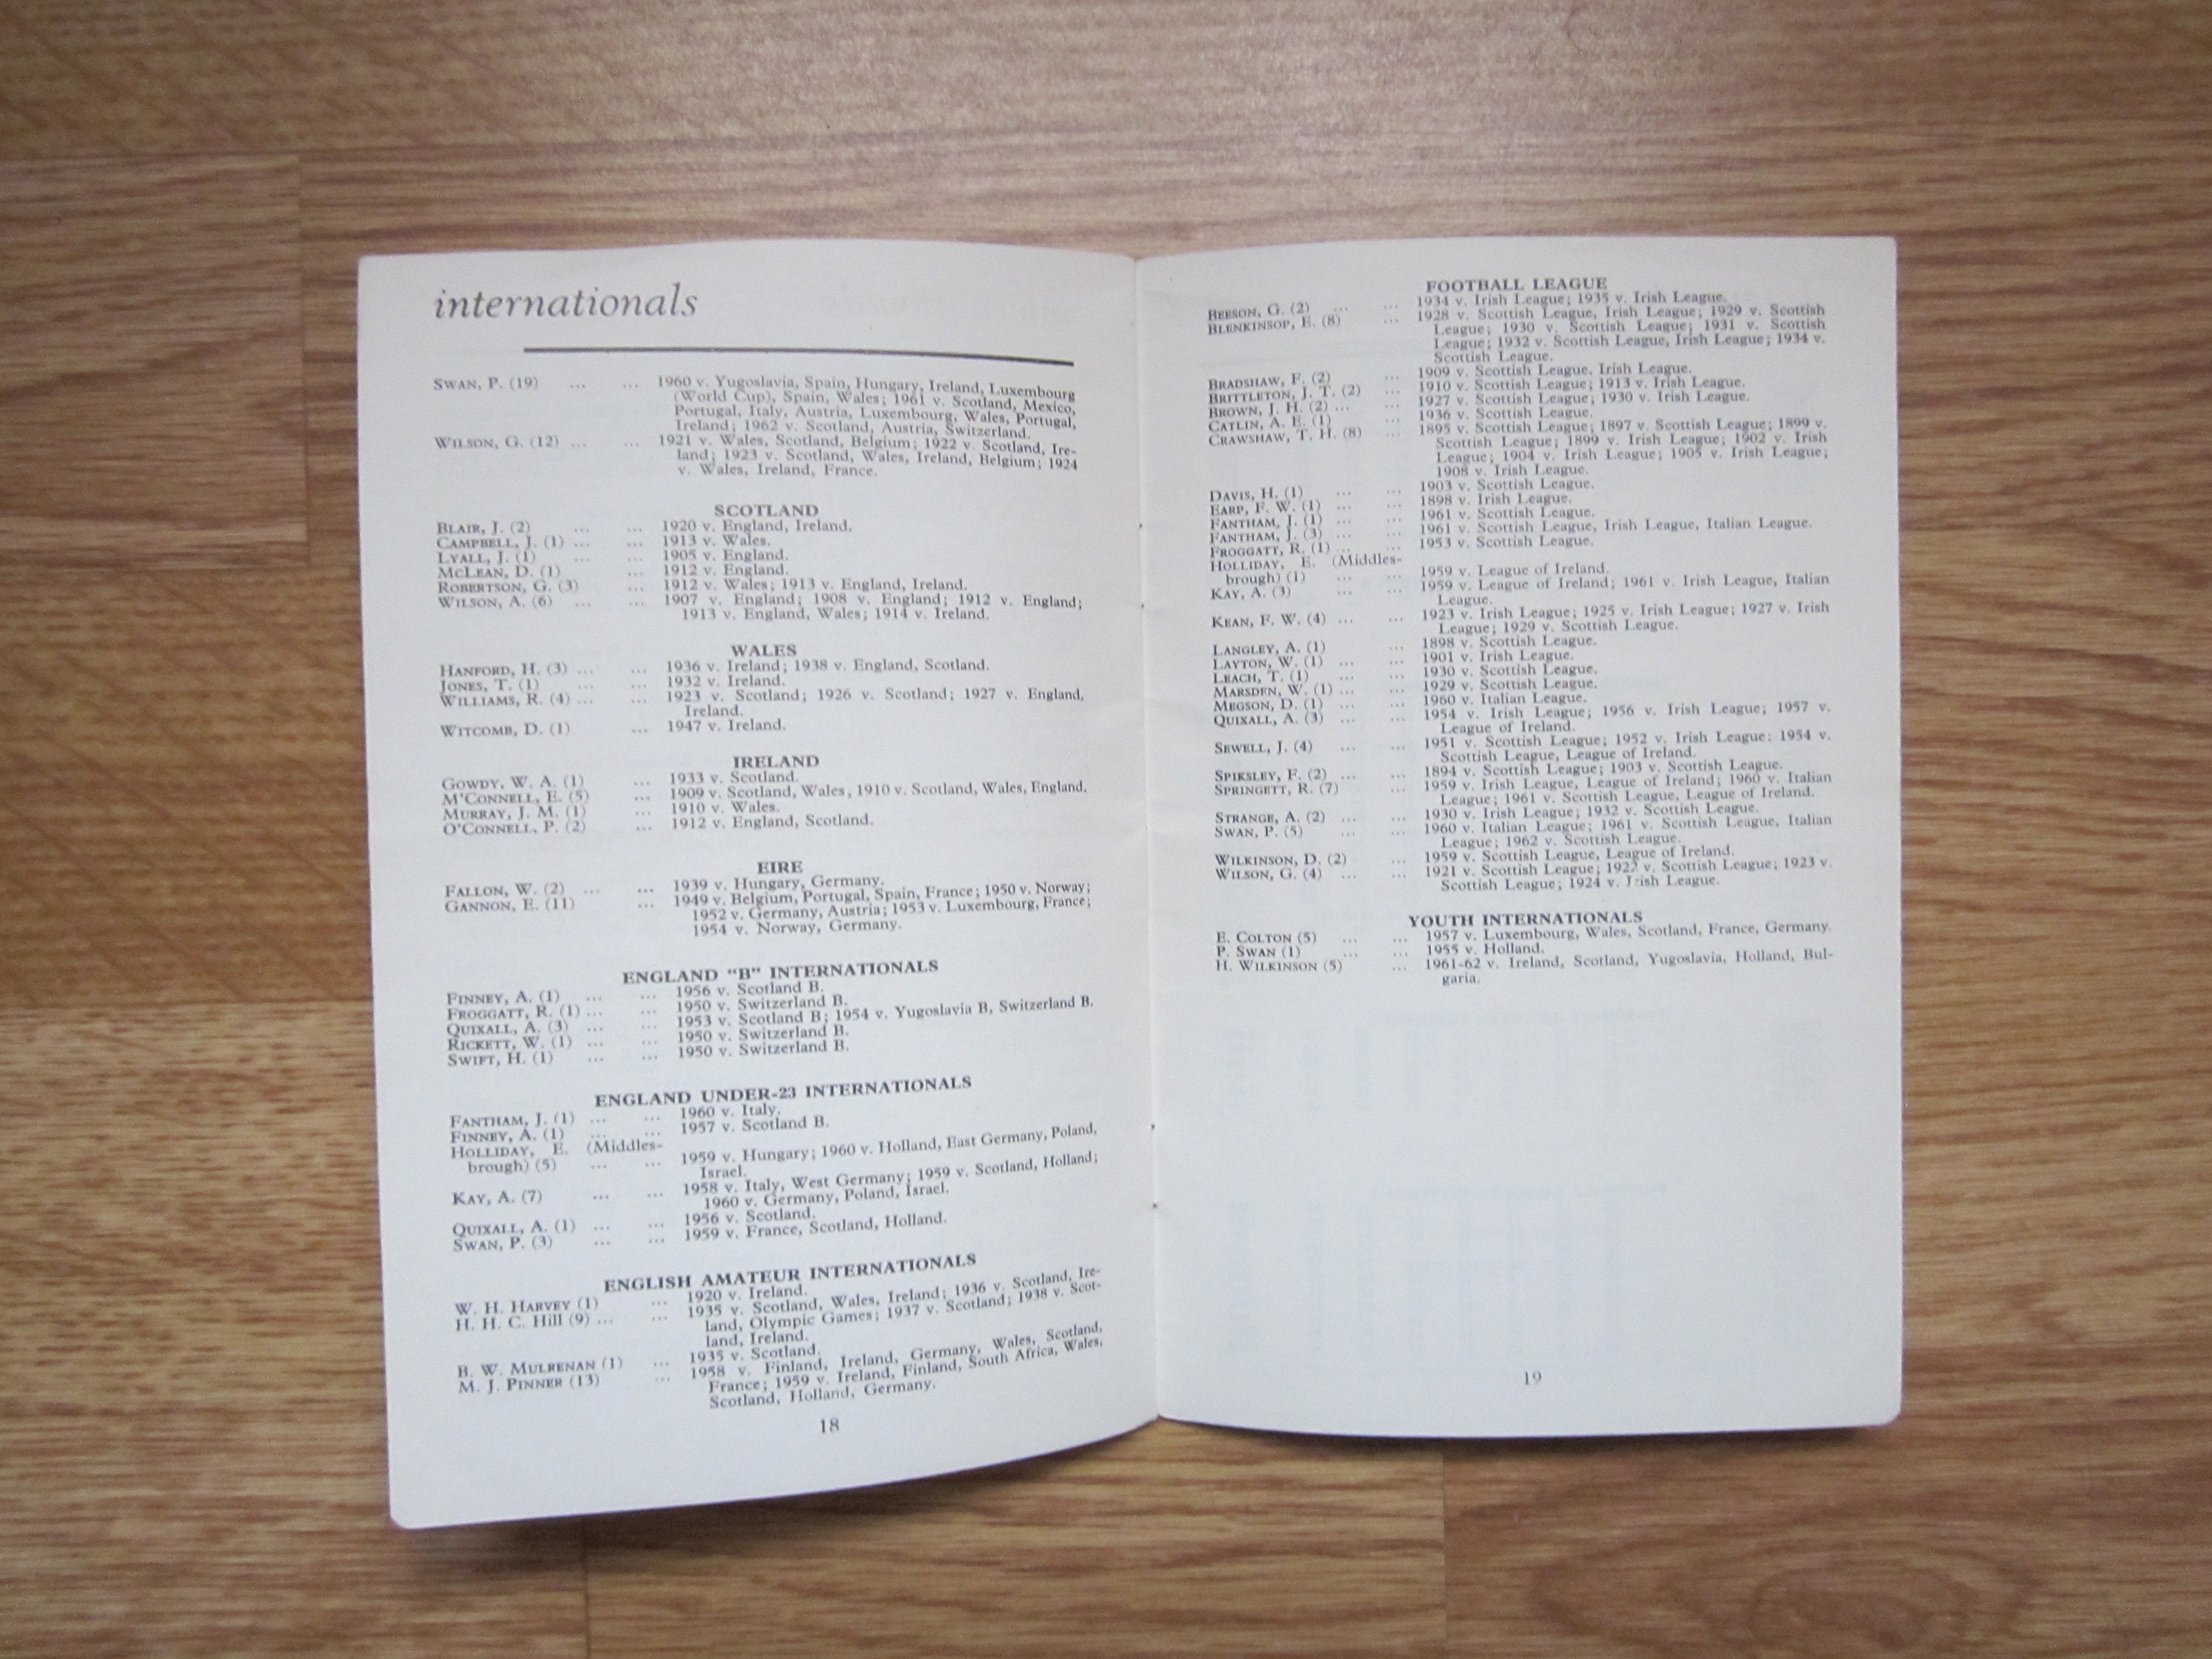 internationals
SWAN, P. (19) ... ... 1960 v. Yugoslavia, Spain, Hungary, Ireland, Luxembourg
(World Cup), Spain, Wales; 1961 v. Scotland, Mexico,
Portugal, Italy, Austria, Luxembourg, Wales, Portugal,
Ireland; 1962 v. Scotland, Austria, Switzerland.
WILSON, G. (12) ... ... 1921 v. Wales, Scotland, Belgium; 1922 v. Scotland, Ire-
land; 1923 v. Scotland, Wales, Ireland, Belgium; 1924
v. Wales, Ireland, France.
SCOTLAND
BLAIR, J. (2) ... ... 1920 v. England, Ireland.
CAMPBELL, J. (1) ... ... 1913 v. Wales.
LYALL, J. (1) ... ... 1905 v. England.
MCLEAN, D. (1) ... 1912 v. England.
ROBERTSON, G. (3) ... 1912 v. Wales; 1913 v. England, Ireland.
WILSON, A. (6) ... ... 1907 v. England; 1908 v. England; 1912 v. England;
1913 v. England, Wales; 1914 v. Ireland.
WALES
HANFORD, H. (3) ... ... 1936 v. Ireland; 1938 v. England, Scotland.
JONES, T. (1) ... ... 1932 v. Ireland.
WILLIAMS, R. (4) ... ... 1923 v. Scotland; 1926 v. Scotland; 1927 v. England,
Ireland.
WITCOMB, D. (1) ... 1947 v. Ireland.
IRELAND
GOWDY, W. A. (1) ... 1933 v. Scotland.
M'CONNELL, E. (5) ... 1909 v. Scotland, Wales, 1910 v. Scotland, Wales, England.
MURRAY, J. M. (1) ... 1910 v. Wales.
O'CONNELL, P. (2) ... 1912 v. England, Scotland.
EIRE
FALLON, W. (2) ... ... 1939 v. Hungary, Germany.
GANNON, E. (11) ... 1949 v. Belgium, Portugal, Spain, France; 1950 v. Norway;
1952 v. Germany, Austria; 1953 v. Luxembourg, France;
1954 v. Norway, Germany.
ENGLAND "B" INTERNATIONALS
FINNEY, A. (1) ... ... 1956 v. Scotland B.
FROGGATT, R. (1) ... ... 1950 v. Switzerland B.
QUIXALL, A. (3) ... ... 1953 v. Scotland B; 1954 v. Yugoslavia B, Switzerland B.
RICKETT, W. (1) ... ... 1950 v. Switzerland B.
SWIFT, H. (1) ... ... 1950 v. Switzerland B.
ENGLAND UNDER-23 INTERNATIONALS
FANTHAM, J. (1) ... ... 1960 v. Italy.
FINNEY, A. (1) ... ... 1957 v. Scotland B.
HOLLIDAY, E. (Middles-
brough) (5) ... ... 1959 v. Hungary; 1960 v. Holland, East Germany, Poland,
Israel.
KAY, A. (7) ... ... 1958 v. Italy, West Germany; 1959 v. Scotland, Holland;
1960 v. Germany, Poland, Israel.
QUIXALL, A. (1) ... ... 1956 v. Scotland.
SWAN, P. (3) ... ... 1959 v. France, Scotland, Holland.
ENGLISH AMATEUR INTERNATIONALS
W. H. HARVEY (1) ... 1920 v. Ireland.
H. H. C. Hill (9) ... ... 1935 v. Scotland, Wales, Ireland; 1936 v. Scotland, Ire-
land, Olympic Games; 1937 v. Scotland; 1938 v. Scot-
land, Ireland.
B. W. MULRENAN (1) ... 1935 v. Scotland.
M. J. PINNER (13) ... 1958 v. Finland, Ireland, Germany, Wales, Scotland,
France; 1959 v. Ireland, Finland, South Africa, Wales,
Scotland, Holland, Germany.
18
FOOTBALL LEAGUE
BEESON, G. (2) ... ... 1934 v. Irish League; 1935 v. Irish League.
BLENKINSOP, E. (8) ... 1928 v. Scottish League, Irish League; 1929 v. Scottish
League; 1930 v. Scottish League; 1931 v. Scottish
League; 1932 v. Scottish League, Irish League; 1934 v.
Scottish League.
BRADSHAW, F. (2) ... 1909 v. Scottish League, Irish League.
BRITTLETON, J. T. (2) ... 1910 v. Scottish League; 1913 v. Irish League.
BROWN, J. H. (2) ... ... 1927 v. Scottish League; 1930 v. Irish League.
CATLIN, A. E. (1) ... 1936 v. Scottish League.
CRAWSHAW, T. H. (8) ... 1895 v. Scottish League; 1897 v. Scottish League; 1899 v.
Scottish League; 1899 v. Irish League; 1902 v. Irish
League; 1904 v. Irish League; 1905 v. Irish League;
1908 v. Irish League.
DAVIS, H. (1) ... ... 1903 v. Scottish League.
EARP, F. W. (1) ... ... 1898 v. Irish League.
FANTHAM, J. (1) ... ... 1961 v. Scottish League.
FANTHAM, J. (3) ... ... 1961 v. Scottish League, Irish League, Italian League.
FROGGATT, R. (1) ... ... 1953 v. Scottish League.
HOLLIDAY, E. (Middles-
brough) (1) ... ... 1959 v. League of Ireland.
KAY, A. (3) ... ... 1959 v. League of Ireland; 1961 v. Irish League, Italian
League.
KEAN, F. W. (4) ... ... 1923 v. Irish League; 1925 v. Irish League; 1927 v. Irish
League; 1929 v. Scottish League.
LANGLEY, A. (1) ... 1898 v. Scottish League.
LAYTON, W. (1) ... ... 1901 v. Irish League.
LEACH, T. (1) ... ... 1930 v. Scottish League.
MARSDEN, W. (1) ... ... 1929 v. Scottish League.
MEGSON, D. (1) ... ... 1960 v. Italian League.
QUIXALL, A. (3) ... ... 1954 v. Irish League; 1956 v. Irish League; 1957 v.
League of Ireland.
SEWELL, J. (4) ... ... 1951 v. Scottish League; 1952 v. Irish League; 1954 v.
Scottish League, League of Ireland.
SPIKSLEY, F. (2) ... ... 1894 v. Scottish League; 1903 v. Scottish League.
SPRINGETT, R. (7) ... 1959 v. Irish League, League of Ireland; 1960 v. Italian
League; 1961 v. Scottish League, League of Ireland.
STRANGE, A. (2) ... ... 1930 v. Irish League; 1932 v. Scottish League.
SWAN, P. (5) ... ... 1960 v. Italian League; 1961 v. Scottish League, Italian
League; 1962 v. Scottish League.
WILKINSON, D. (2) ... 1959 v. Scottish League, League of Ireland.
WILSON, G. (4) ... ... 1921 v. Scottish League; 1922 v. Scottish League; 1923 v.
Scottish League; 1924 v. Irish League.
YOUTH INTERNATIONALS
E. COLTON (5) ... ... 1957 v. Luxembourg, Wales, Scotland, France, Germany.
P. SWAN (1) ... ... 1955 v. Holland.
H. WILKINSON (5) ... 1961-62 v. Ireland, Scotland, Yugoslavia, Holland, Bul-
garia.
19